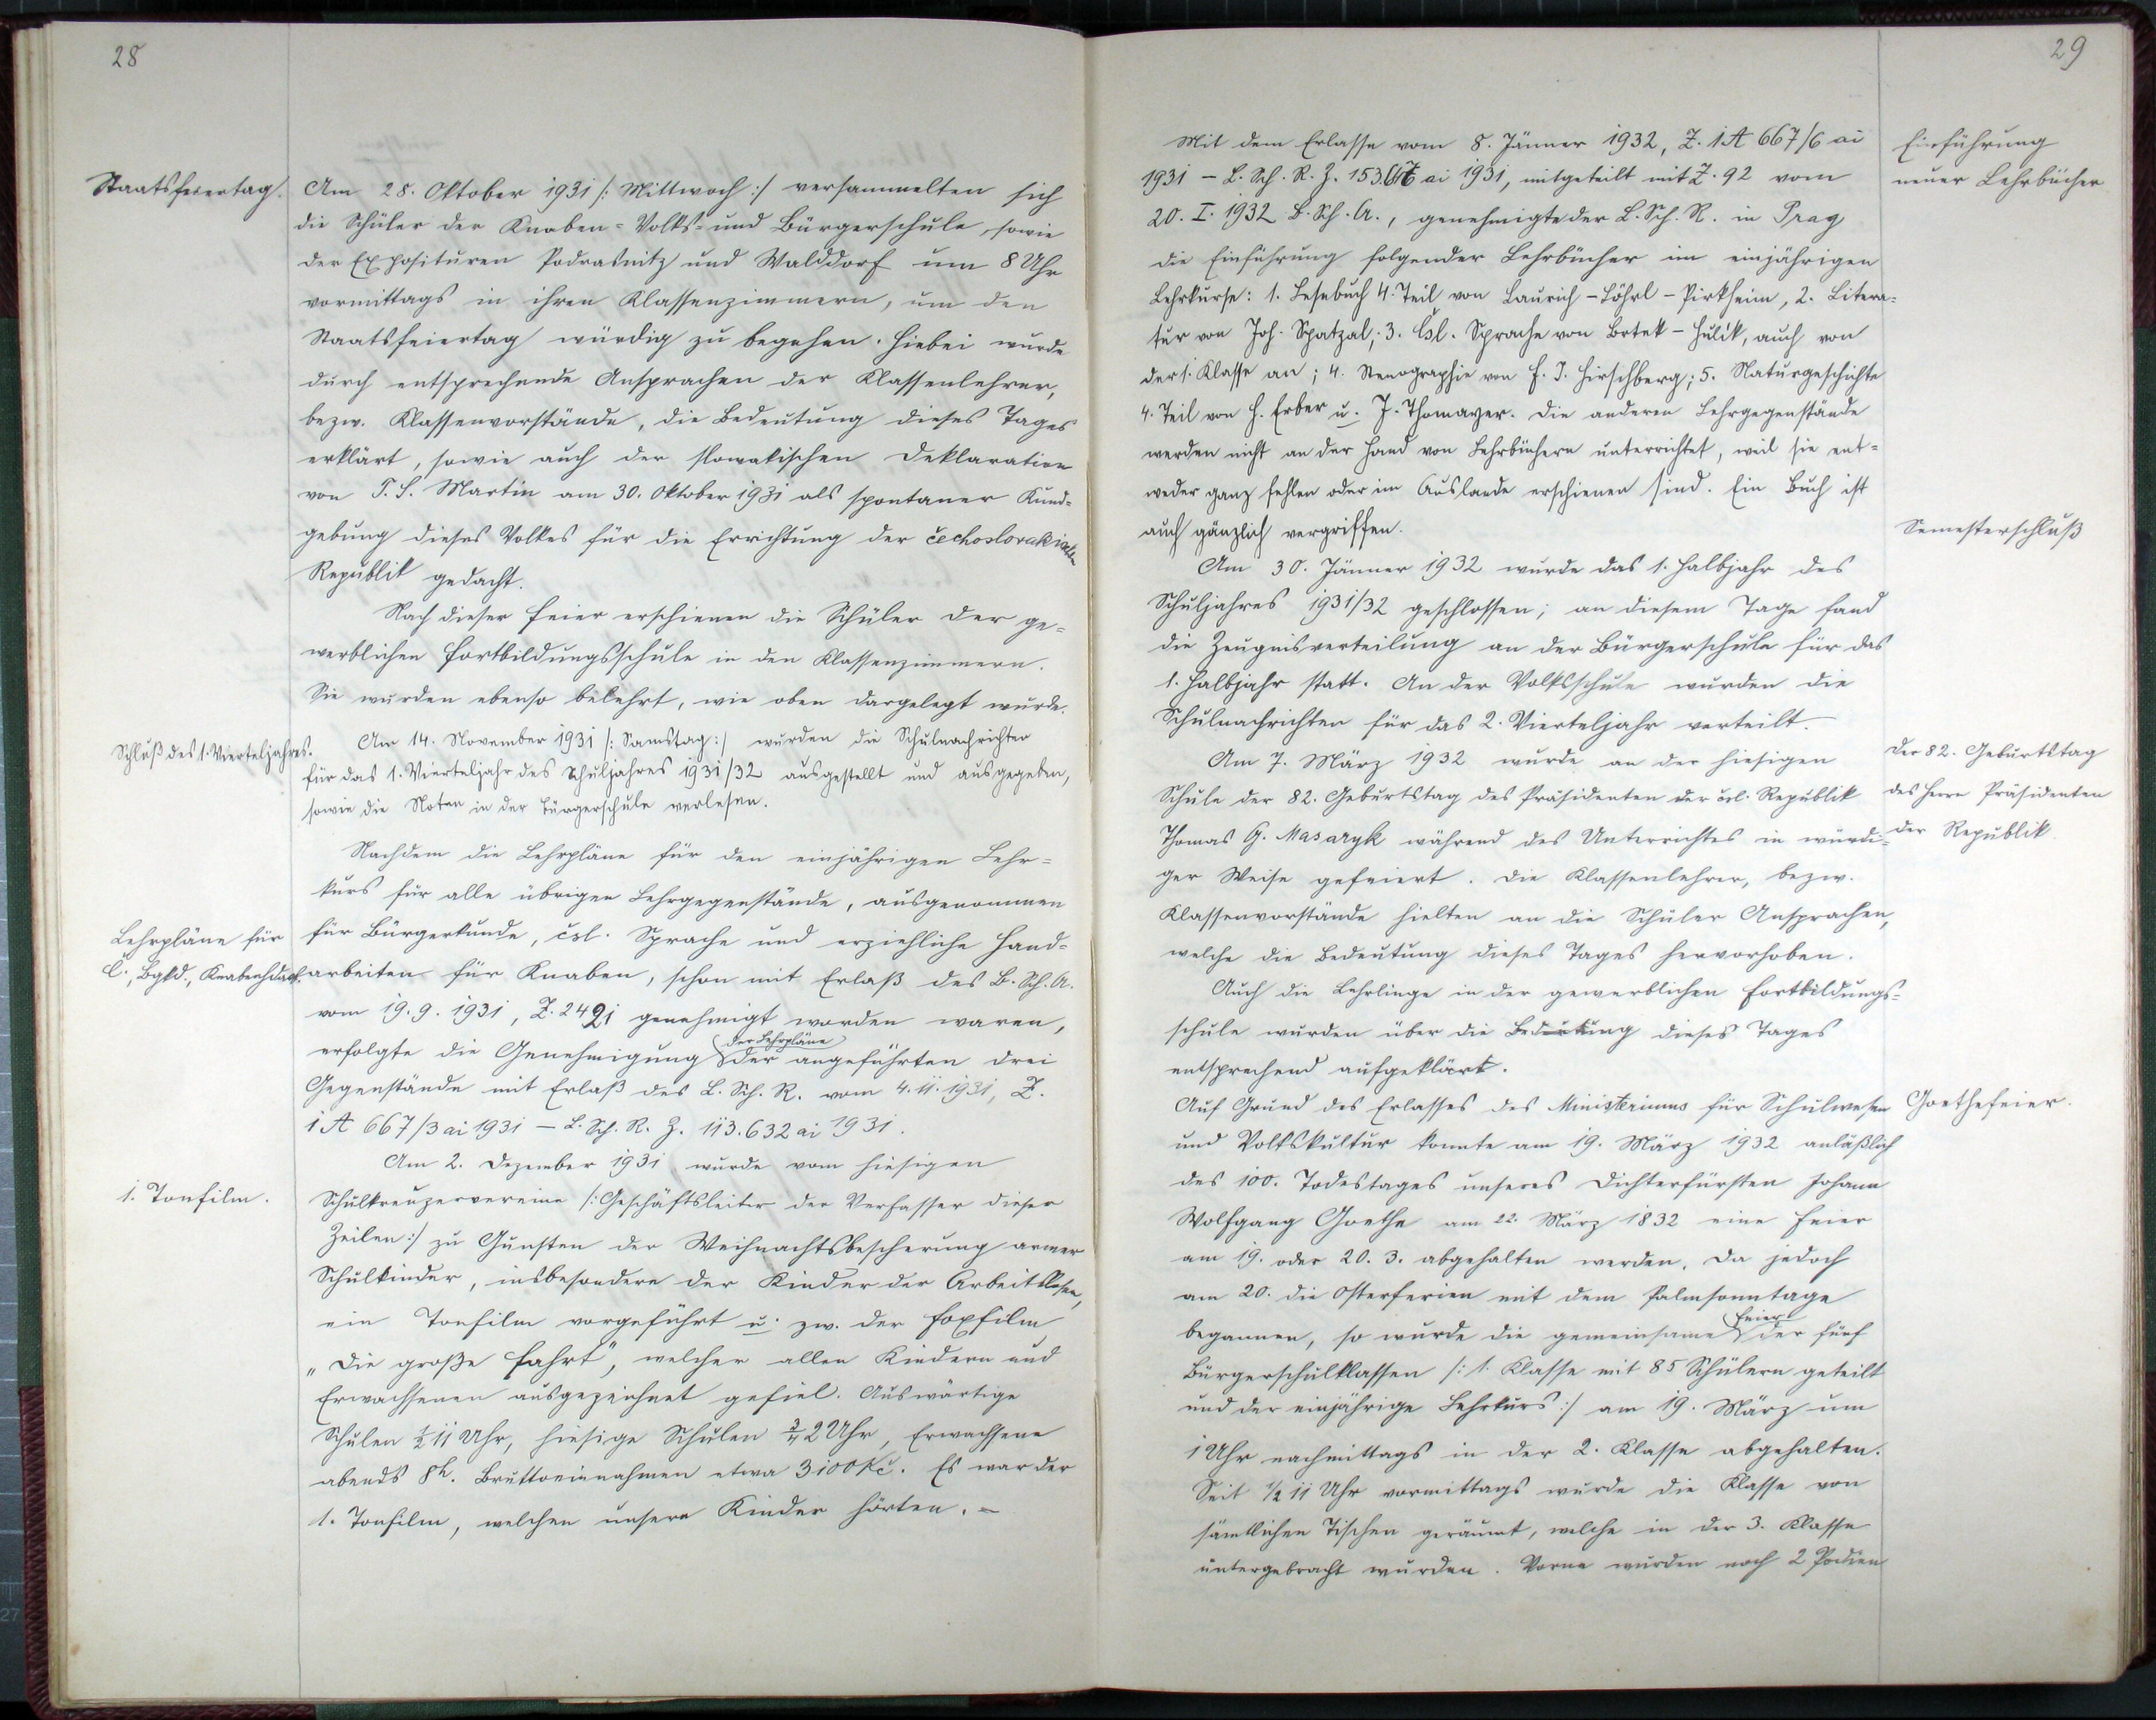 28
Staatsfeiertag.
Am 28. Oktober 1931 /: Mittwoch :/ versammelten sich
die Schüler der Knaben-Volks- und Bürgerschule, sowie
der Exposituren Podrasnitz und Walddorf um 8 Uhr
vormittags in ihren Klassenzimmern, um den
Staatsfeiertag würdig zu begehen. Hiebei wurde
durch entsprechende Ansprachen der Klassenlehrer,
bezw. Klassenvorstände, die Bedeutung dieses Tages
erklärt, sowie auch der slowakischen Deklaration
von T. S. Martin am 30. Oktober 1931 als spontaner Kund-
gebung dieses Volkes für die Errichtung der čechoslovakischen
Republik gedacht.
Nach dieser Feier erschienen die Schüler der ge-
werblichen Fortbildungsschule in den Klassenzimmern.
Sie wurden ebenso belehrt, wie oben dargelegt wurde.
Schluß des 1. Vierteljahres.
Am 14. November 1931 /: Samstag :/ wurden die Schulnachrichten
für das 1. Vierteljahr des Schuljahres 1931/32 ausgestellt und ausgegeben,
sowie die Noten in der Bürgerschule verlesen.
Nachdem die Lehrpläne für den einjährigen Lehr-
kurs für alle übrigen Lehrgegenstände, ausgenommen
Lehrpläne für
für Bürgerkunde, čsl. Sprache und erziehliche Hand-
Č., Bgkd., Knabenhdarb.
arbeiten für Knaben, schon mit Erlaß des B. Sch. A.
vom 19. 9. 1931, Z. 2421 genehmigt worden waren,
der Lehrpläne
erfolgte die Genehmigung der angeführten drei
Gegenstände mit Erlaß des L. Sch. R. vom 4. 11. 1931, Z.
1 A 667/3 ai 1931 – L. Sch. R. Z. 113.632 ai 1931.
Am 2. Dezember 1931 wurde vom hiesigen
1. Tonfilm.
Schulkreuzervereine /: Geschäftsleiter der Verfasser dieser
Zeilen :/ zu Gunsten der Weihnachtsbescherung armer
Schulkinder, insbesondere der Kinder der Arbeitslosen,
ein Tonfilm vorgeführt u. zw. der Foxfilm
„Die große Fahrt", welcher allen Kindern und
Erwachsenen ausgezeichnet gefiel. Auswärtige
Schulen ½ 11 Uhr, hiesige Schulen ¾ 2 Uhr, Erwachsene
abends 8h. Bruttoeinnahmen etwa 3100 Kč. Es war der
1. Tonfilm, welchen unsere Kinder hörten. –
29
Mit dem Erlasse vom 8. Jänner 1932, Z. 1 A 667/6 ai
Einführung
1931 – L. Sch. R. Z. ai 1931, mitgeteilt mit Z. 92 vom
neuer Lehrbücher
20. I. 1932 B. Sch. A., genehmigte der L. Sch. R. in Prag
die Einführung folgender Lehrbücher im einjährigen
Lehrkurse: 1. Lesebuch 4. Teil von Laurich – Löhrl – Pirkheim, 2. Litera-
tur von Joh. Spatzal; 3. Čsl. Sprache von Brtek – Hulík, auch von
der 1. Klasse an; 4. Stenographie von F. J. Hirschberg; 5. Naturgeschichte
4. Teil von H. Erber u. J. Thomayer. Die anderen Lehrgegenstände
werden nicht an der Hand von Lehrbüchern unterrichtet, weil sie ent-
weder ganz fehlen oder im Auslande erschienen sind. Ein Buch ist
auch gänzlich vergriffen.
Semesterschluß
Am 30. Jänner 1932 wurde das 1. Halbjahr des
Schuljahres 1931/32 geschlossen; an diesem Tage fand
die Zeugnisverteilung an der Bürgerschule für das
1. Halbjahr statt. An der Volksschule wurden die
Schulnachrichten für das 2. Vierteljahr verteilt.
Am 7. März 1932 wurde an der hiesigen
Der 82. Geburtstag
Schule der 82. Geburtstag des Präsidenten der čsl. Republik
des Herrn Präsidenten
Thomas G. Masaryk während des Unterrichtes in würdi-
der Republik.
ger Weise gefeiert. Die Klassenlehrer, bezw.
Klassenvorstände hielten an die Schüler Ansprachen,
welche die Bedeutung dieses Tages hervorhoben.
Auch die Lehrlinge in der gewerblichen Fortbildungs-
schule wurden über die Bedeutung dieses Tages
entsprechend aufgeklärt.
Auf Grund des Erlasses des Ministeriums für Schulwesen
Goethefeier.
und Volkskultur konnte am 19. März 1932 anläßlich
des 100. Todestages unseres Dichterfürsten Johann
Wolfgang Goethe am 22. März 1832 eine Feier
am 19. oder 20. 3. abgehalten werden. Da jedoch
am 20. die Osterferien mit dem Palmsonntage
Feier
begannen, so wurde die gemeinsame der fünf
Bürgerschulklassen /: 1. Klasse mit 85 Schülern geteilt
und der einjährige Lehrkurs :/ am 19. März um
1 Uhr nachmittags in der 2. Klasse abgehalten.
Seit ½ 11 Uhr vormittags wurde die Klasse von
sämtlichen Tischen geräumt, welche in der 3. Klasse
untergebracht wurden. Vorne wurden noch 2 Podien